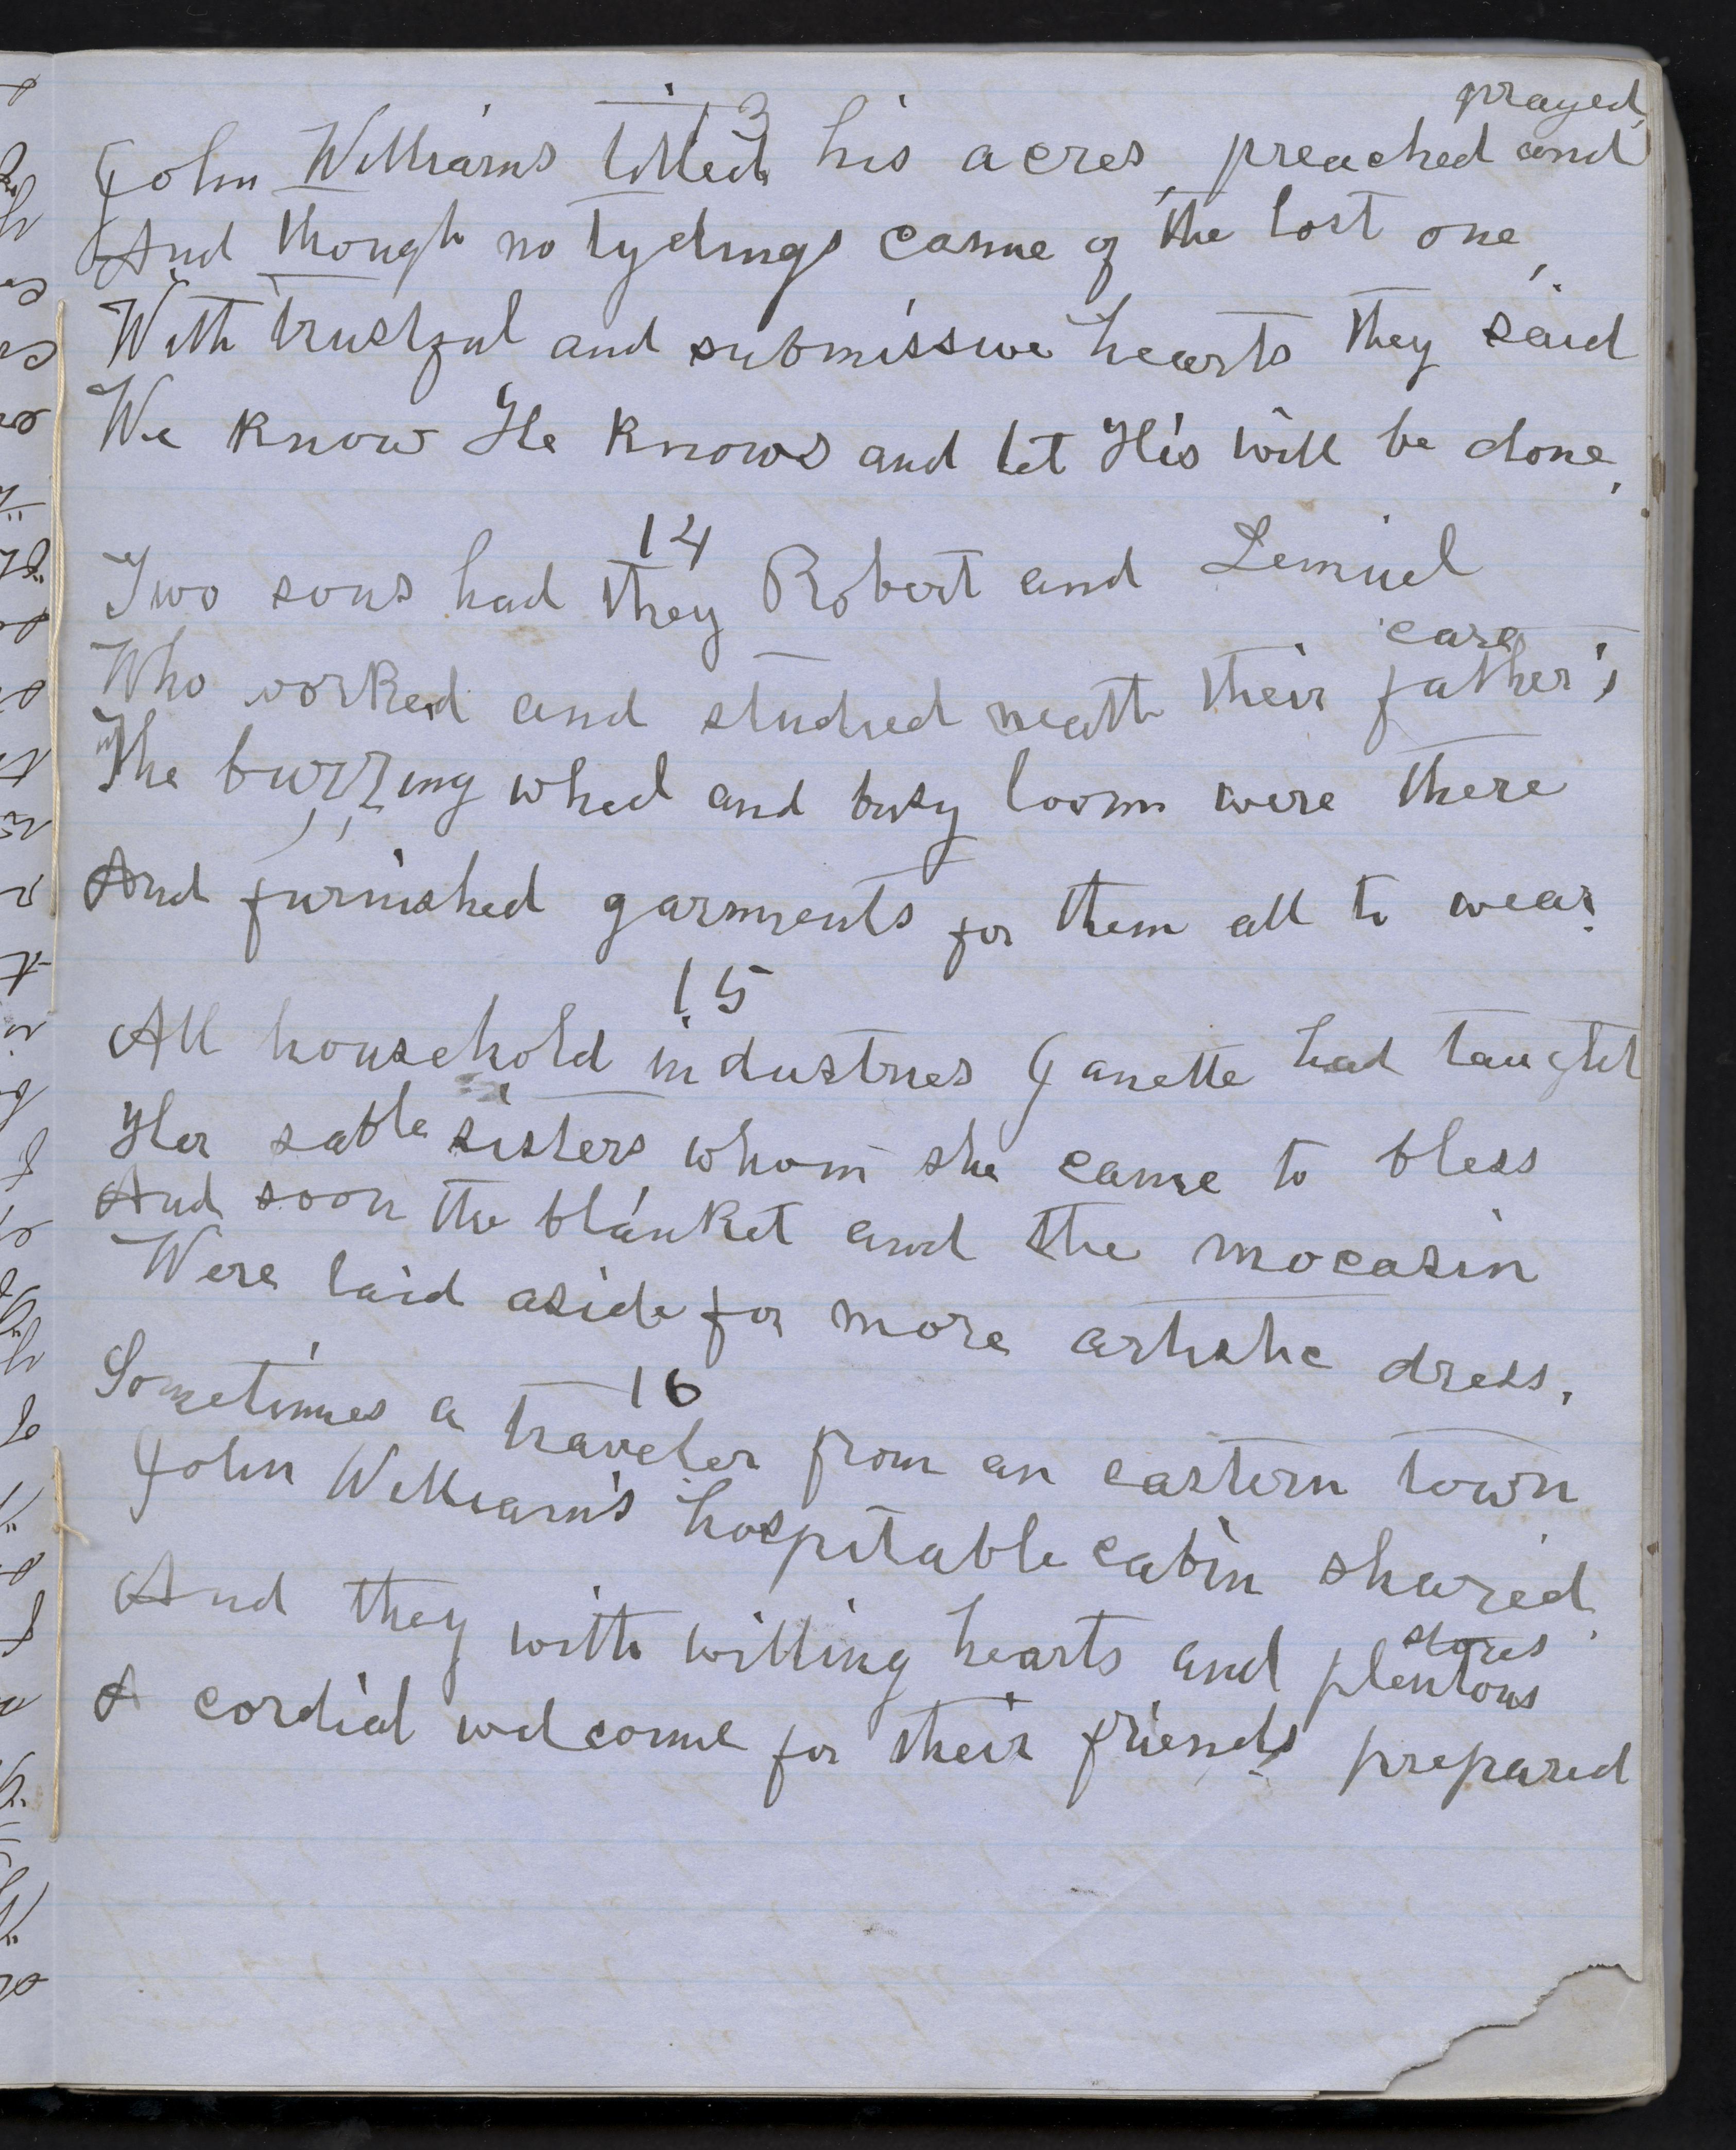 13
John Williams tilled his acres, preached and prayed,
And though no tydings came of the lost one,
With trustful and submissive hearts they said
We know He knows and let His will be done,
14
Two sons had they Robert and Lemuel
Who worked and studied neath their father's care
The buzzing wheel and busy loom were there
And furnished garments for them all to wear.
15
All household industries Janette had taught
Her sable sisters whom she came to bless
And soon the blanket and the mocasin
Were laid aside for more artistic dress,
16
Sometimes a traveler from an eastern town
John William's hospitable cabin shared
And they with willing hearts and plentous stores
A cordial welcome for their friends prepared